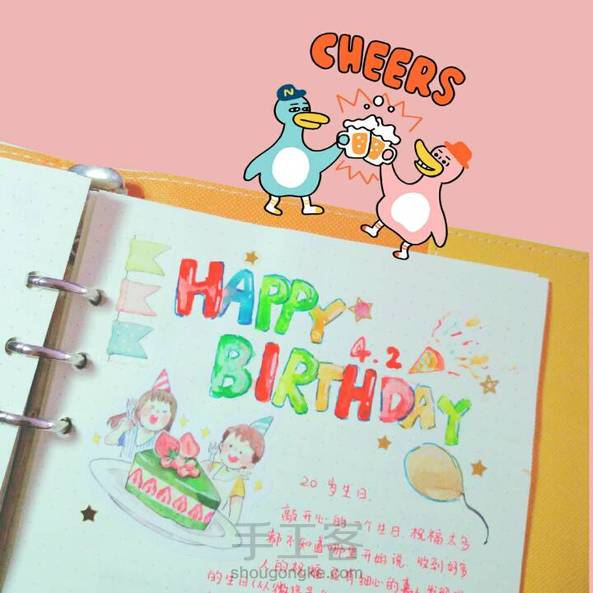 CHEERS
N
HAPPY
4.2
BIRTHDAY
20岁生日.
敲开心的一个生日.祝福太多
都不知道哪里开始说.收到好多
人的祝福
的生日
手工客
shougongke.com